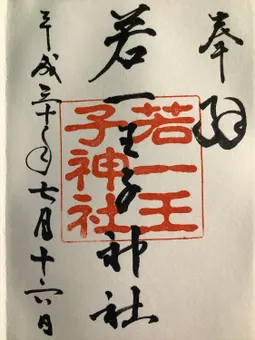 奉拝
若一王子神社
若一王
子神社
平成三十年七月十六日